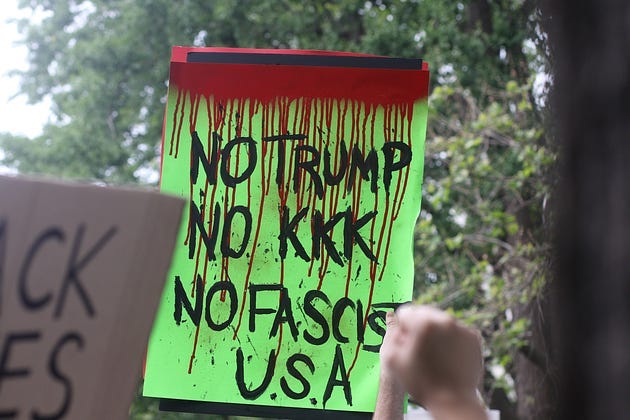 NO TRUMP
NO KKK
NO FASCIST
U.S.A
ACK
ES